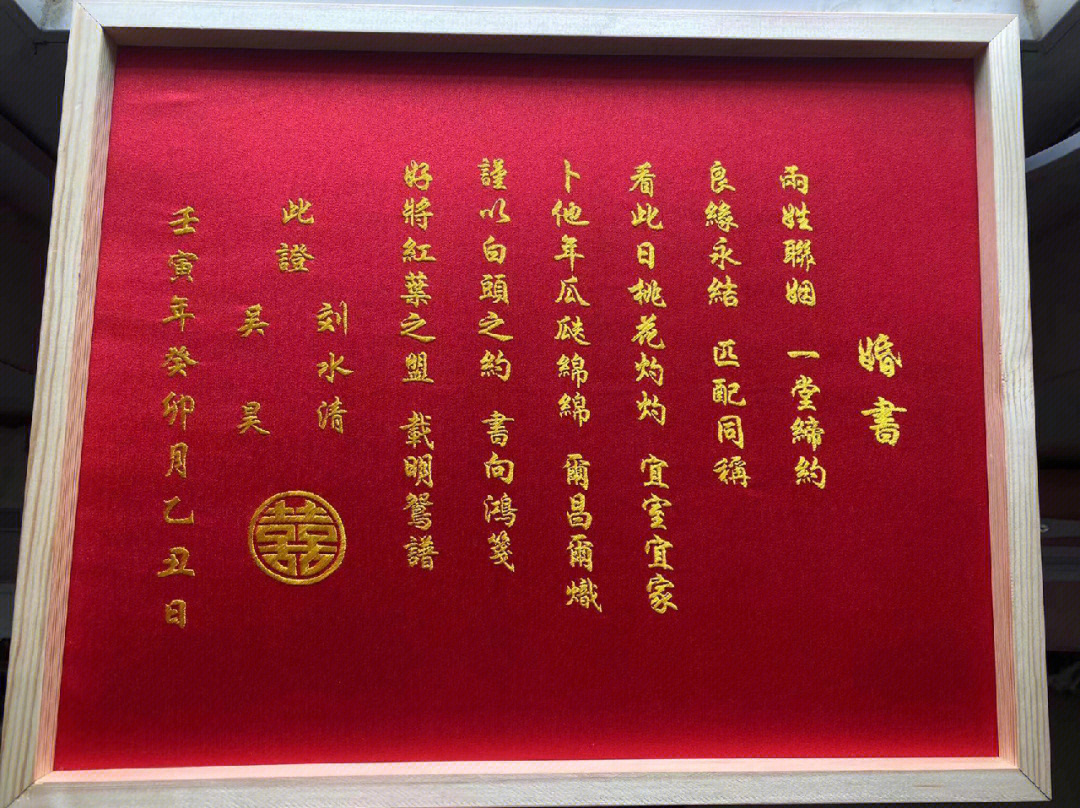 婚書
兩姓聯姻 一堂締約
良緣永結 匹配同稱
看此日桃花灼灼 宜室宜家
卜他年瓜瓞綿綿 爾昌爾熾
謹以白頭之約 書向鴻箋
好將紅葉之盟 載明鴛譜
此證
刘水清
吴昊
囍
壬寅年癸卯月乙丑日